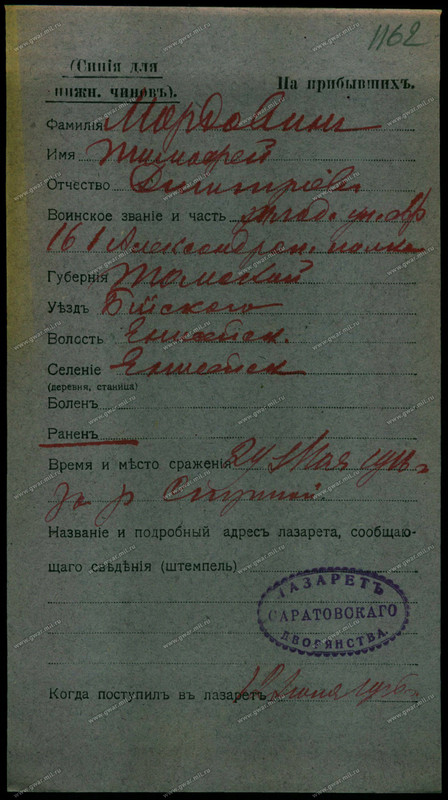 1162
(Синія для
нижн. чиновъ).
На прибывшихъ.
Фамилія Мордовинъ
Имя Тимофей
Отчество Дмитріевъ
Воинское званіе и часть млад. ун. оф
161 Александроп. полка
Губернія Томской
Уѣздъ Бійского
Волость Енисейск.
Селеніе Енисейск
(деревня, станица)
Боленъ
Раненъ
Время и мѣсто сраженія 24 Мая 1916 г.
за р
Названіе и подробный адресъ лазарета, сообщаю-
щаго свѣдѣнія (штемпель)
ЛАЗАРЕТЪ
САРАТОВСКАГО
ДВОРЯНСТВА.
Когда поступилъ въ лазаретъ Іюня 1916 г.
www.gwar.mil.ru